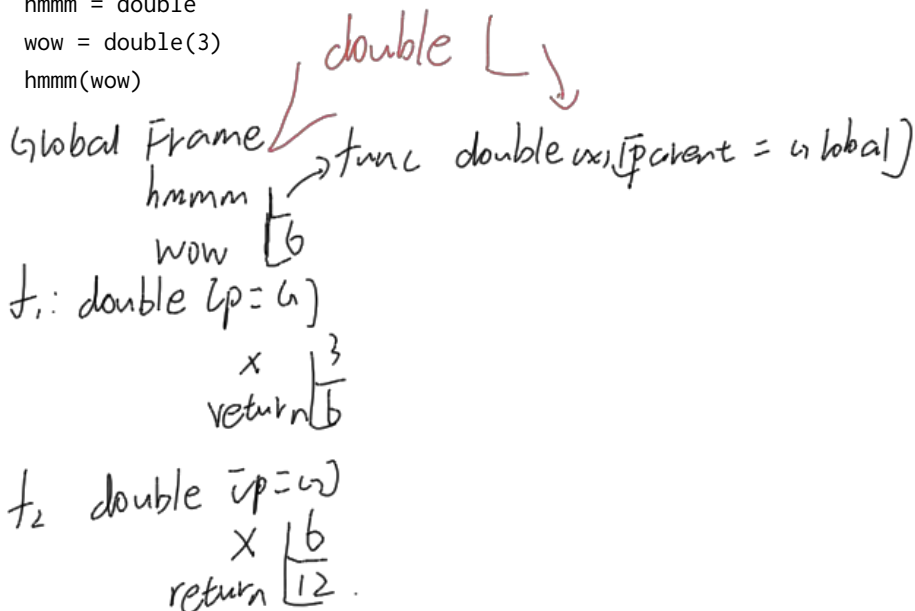 hmmm = double
wow = double(3)
hmmm(wow)
double
Global Frame
func double(x) [parent = Global]
hmmm
wow 6
f1: double [p=G]
x 3
return 6
f2 double [p=G]
x 6
return 12.